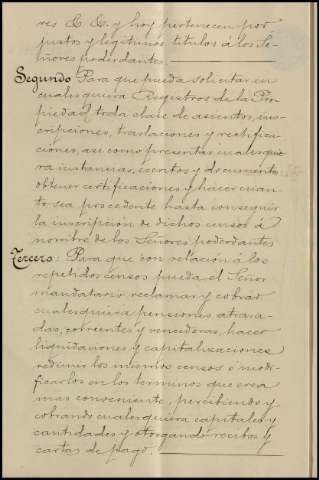 res C. C. y hoy pertenecen por
justos y legitimos titulos á los Se-
ñores poderdantes
Segundo: Para que pueda solicitar en
cualesquiera Registros de la Pro-
piedad toda clase de asientos, ins-
cripciones, traslaciones y rectifica-
ciones, asi como presentar cualesquie-
ra instancias, escritos y documentos
obtener certificaciones y hacer cuan-
to sea procedente hasta conseguir
la inscripción de dichos censos á
nombre de los Señores poderdantes
Tercero: Para que con relación á los
repetidos censos pueda el Señor
mandatario reclamar y cobrar
cualesquiera pensiones atrasa-
das, corrientes y venideras, hacer
liquidaciones y capitalizaciones
redimir los mismos censos ó modi-
ficarlos en los terminos que crea
mas conveniente, percibiendo y
cobrando cualesquiera capitales y
cantidades y otorgando recibos y
cartas de pago.